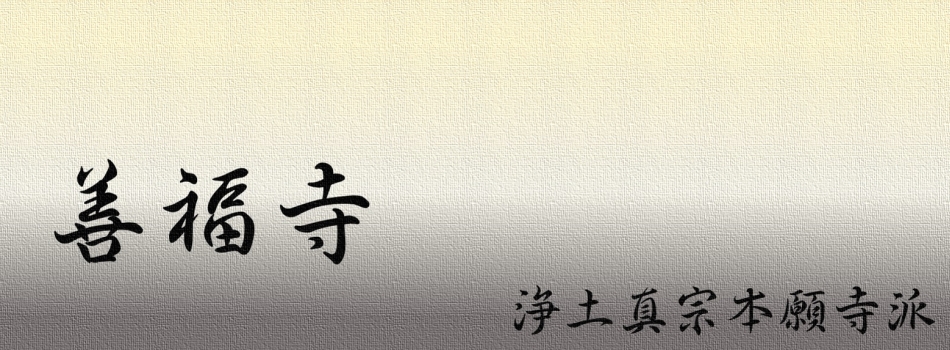 善福寺
浄土真宗本願寺派